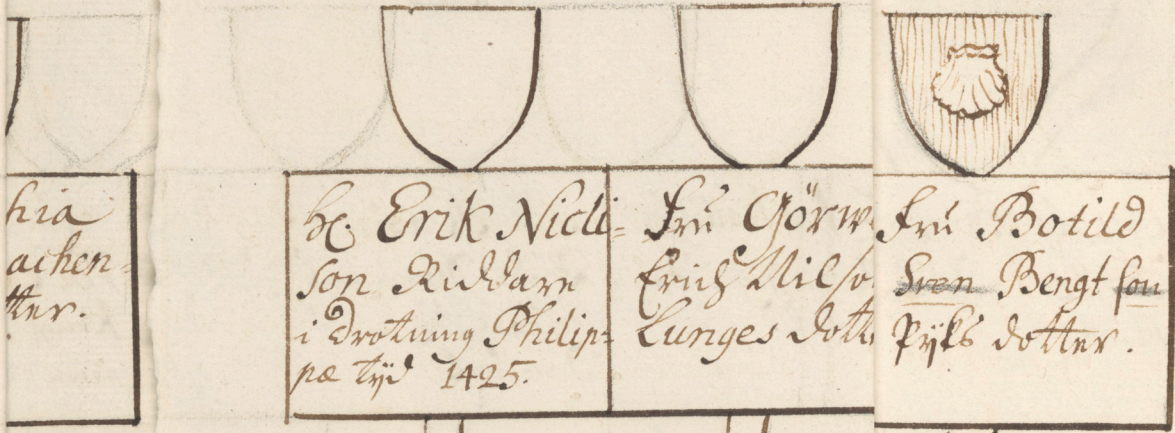 hia
achen-
tter.
Hr. Erik Nicli-
son Riddare
i Drotning Philip-
pæ tÿd 1425.
Fru Görw
Erich Nilso
Lunges dott
Fru Botild
Sven Bengt son
Pÿks dotter.